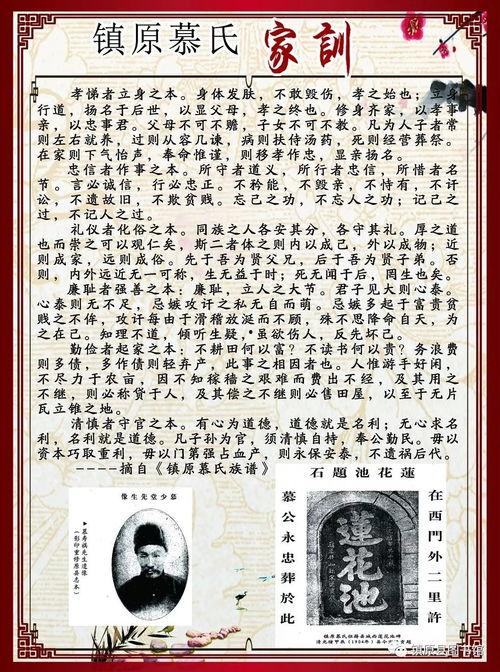 镇原慕氏 家訓
孝悌者立身之本。身体发肤，不敢毁伤，孝之始也；立身
行道，扬名于后世，以显父母，孝之终也。修身齐家，以孝事
亲，以忠事君。父母不可不赡，子女不可不教。凡为人子者常
则左右就养，过则从容几谏，病则扶侍汤药，死则经营葬祭。
在家则下气怡声，奉命惟谨，则移孝作忠，显亲扬名。
忠信者作事之本。所守者道义，所行者忠信，所惜者名
节。言必诚信，行必忠正。不矜能，不毁亲，不恃有，不讦
讼，不遗故旧，不欺贫贱。忘己之功，不忘人之功；记己之
过，不记人之过。
礼仪者化俗之本。同族之人各安其分，各守其礼。厚之道
也而崇之可以观仁矣，斯二者体之则内以成己，外以成物；近
则成家，远则成俗。先于吾为贤父兄，后于吾为贤子弟。否
则，内外远近无一可称，生无益于时；死无闻于后，罔生也矣。
廉耻者强善之本：廉耻，立人之大节。君子见大则心泰。
心泰则无不足，忌嫉攻讦之私无自而萌。忌嫉多起于富贵贫
贱之不侔，攻讦每由于滑稽放诞而不顾，殊不思降命自天，为
之在己。知理不道，倾听生疑，虽欲伤人，反先坏己。
勤俭者起家之本：不耕田何以富？不读书何以贵？务浪费
则多债，多作债则轻弃产，此事之相因者也。人惟游手好闲，
不尽力于农亩，因不知稼穑之艰难而费出不经，及其用之
不继，则必称贷于人，及其偿之不继则必售田屋，以至于无片
瓦立锥之地。
清慎者守官之本。有心为道德，道德就是名利；无心求名
利，名利就是道德。凡子孙为官，须清慎自持，奉公勤民。毋以
资本巧取重利，毋以门第强占血产，则永保安泰，不遗祸后代。
----摘自《镇原慕氏族谱》
石題池花蓮
在西門外二里許
慕公永忠葬於此
像生先堂少慕
慕寿祺先生遗像
（影印重修原县志本）
蓮花池
镇原慕氏祖籍县城西莲花池碑
镇原县图书馆